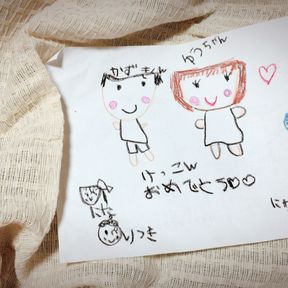 かずきくん
ゆうちゃん
けっこん
おめでとう
りつき